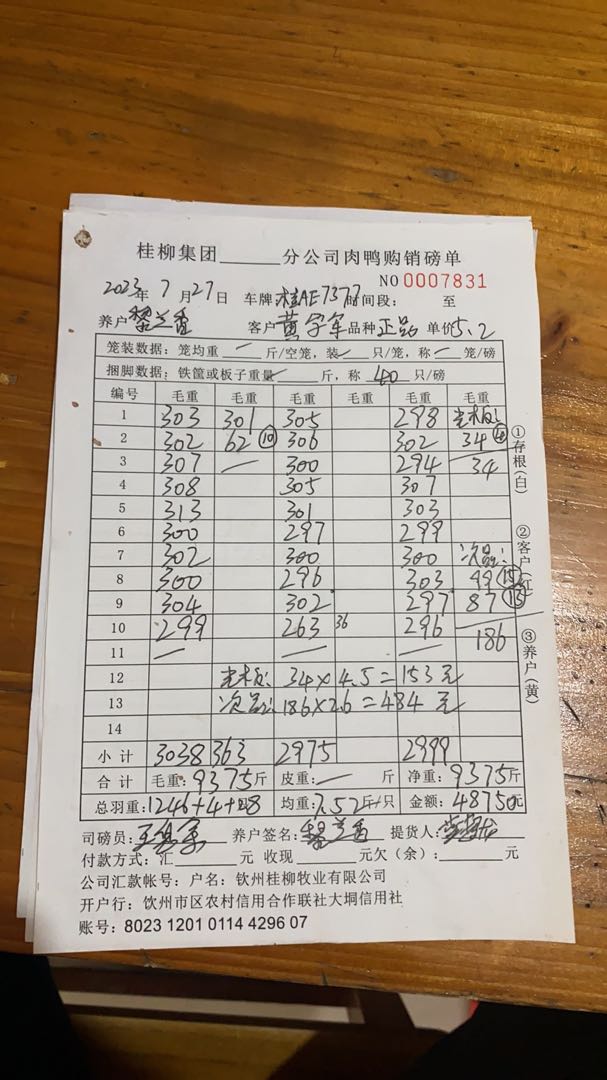 桂柳集团______分公司肉鸭购销磅单
NO 0007831
2023年 7月27日 车牌 桂AE7377 时间段: 至
养户 黎兰香 客户 黄学军 品种 正品 单价5.2
笼装数据: 笼均重 — 斤/空笼, 装 — 只/笼, 称 — 笼/磅
捆脚数据: 铁筐或板子重量 — 斤, 称 40 只/磅
编号 毛重 毛重 毛重 毛重 毛重 毛重
1 303 301 305 298 毛板:
2 302 62 ⑩ 306 302 34
3 307 — 300 294 34
4 308 305 307
5 313 301 303
6 300 297 299
7 302 300 300 次品:
8 300 296 303 99 ⑮
9 304 302 297 87 ⑮
10 299 263 36 296 186
11 — — —
12 毛板: 34×4.5=153元
13 次品: 186×2.6=484元
14
小计 3038 363 2975 2999
合计 毛重: 9375斤 皮重: — 斤 净重: 9375斤
总羽重: 1246+4+28 均重: 7.52斤/只 金额: 48750元
司磅员: 养户签名: 黎兰香 提货人:
付款方式: 汇______元 收现______元欠(余):______元
公司汇款帐号: 户名: 钦州桂柳牧业有限公司
开户行: 钦州市区农村信用合作联社大垌信用社
账号: 8023 1201 0114 4296 07
①存根(白)
②客户(红)
③养户(黄)